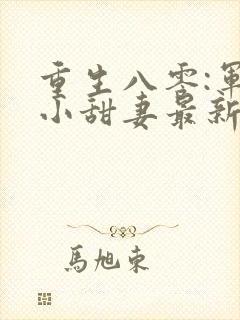 重生八零:軍
小甜妻最新
馬旭東